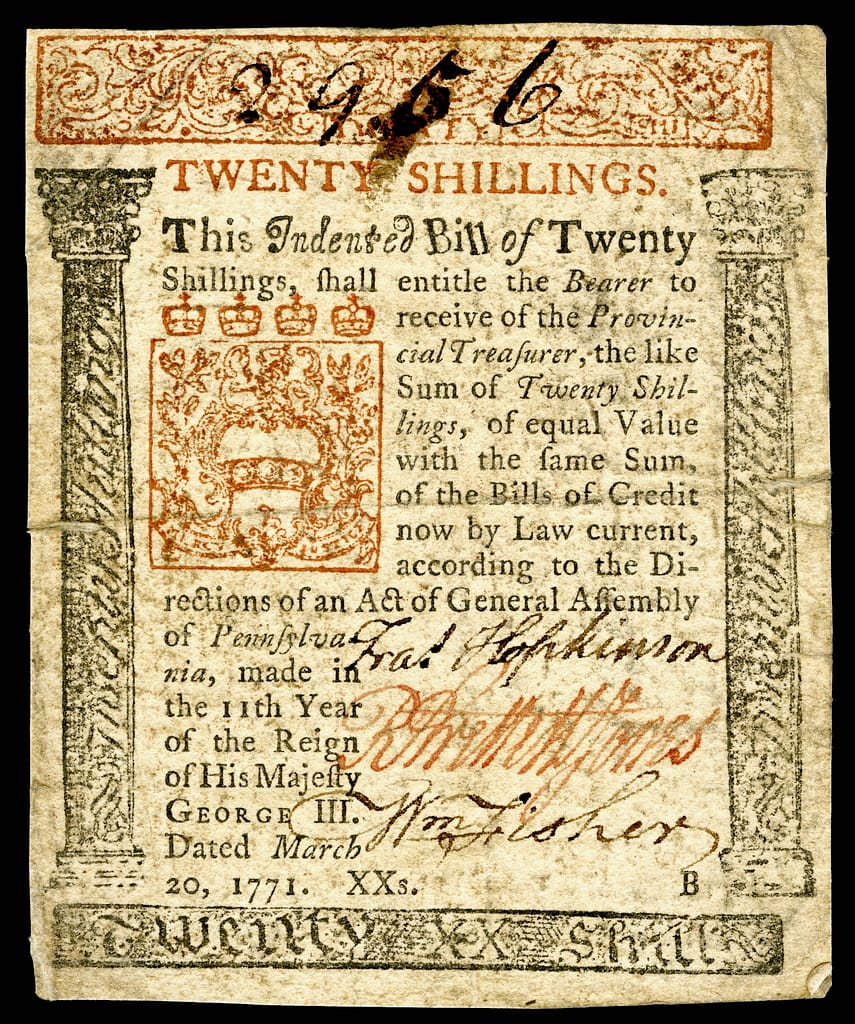 2956
TWENTY SHILLINGS.
This Indented Bill of Twenty
Shillings, ſhall entitle the Bearer to
receive of the Provin-
cial Treaſurer, the like
Sum of Twenty Shil-
lings, of equal Value
with the ſame Sum,
of the Bills of Credit
now by Law current,
according to the Di-
rections of an Act of General Aſſembly
of Pennſylva-
nia, made in
the 11th Year
of the Reign
of His Majeſty
GEORGE III.
Dated March
20, 1771. XXs. B
Fras. Hopkinson
Wm Fisher
Twenty Shillings
Twenty XX Shill